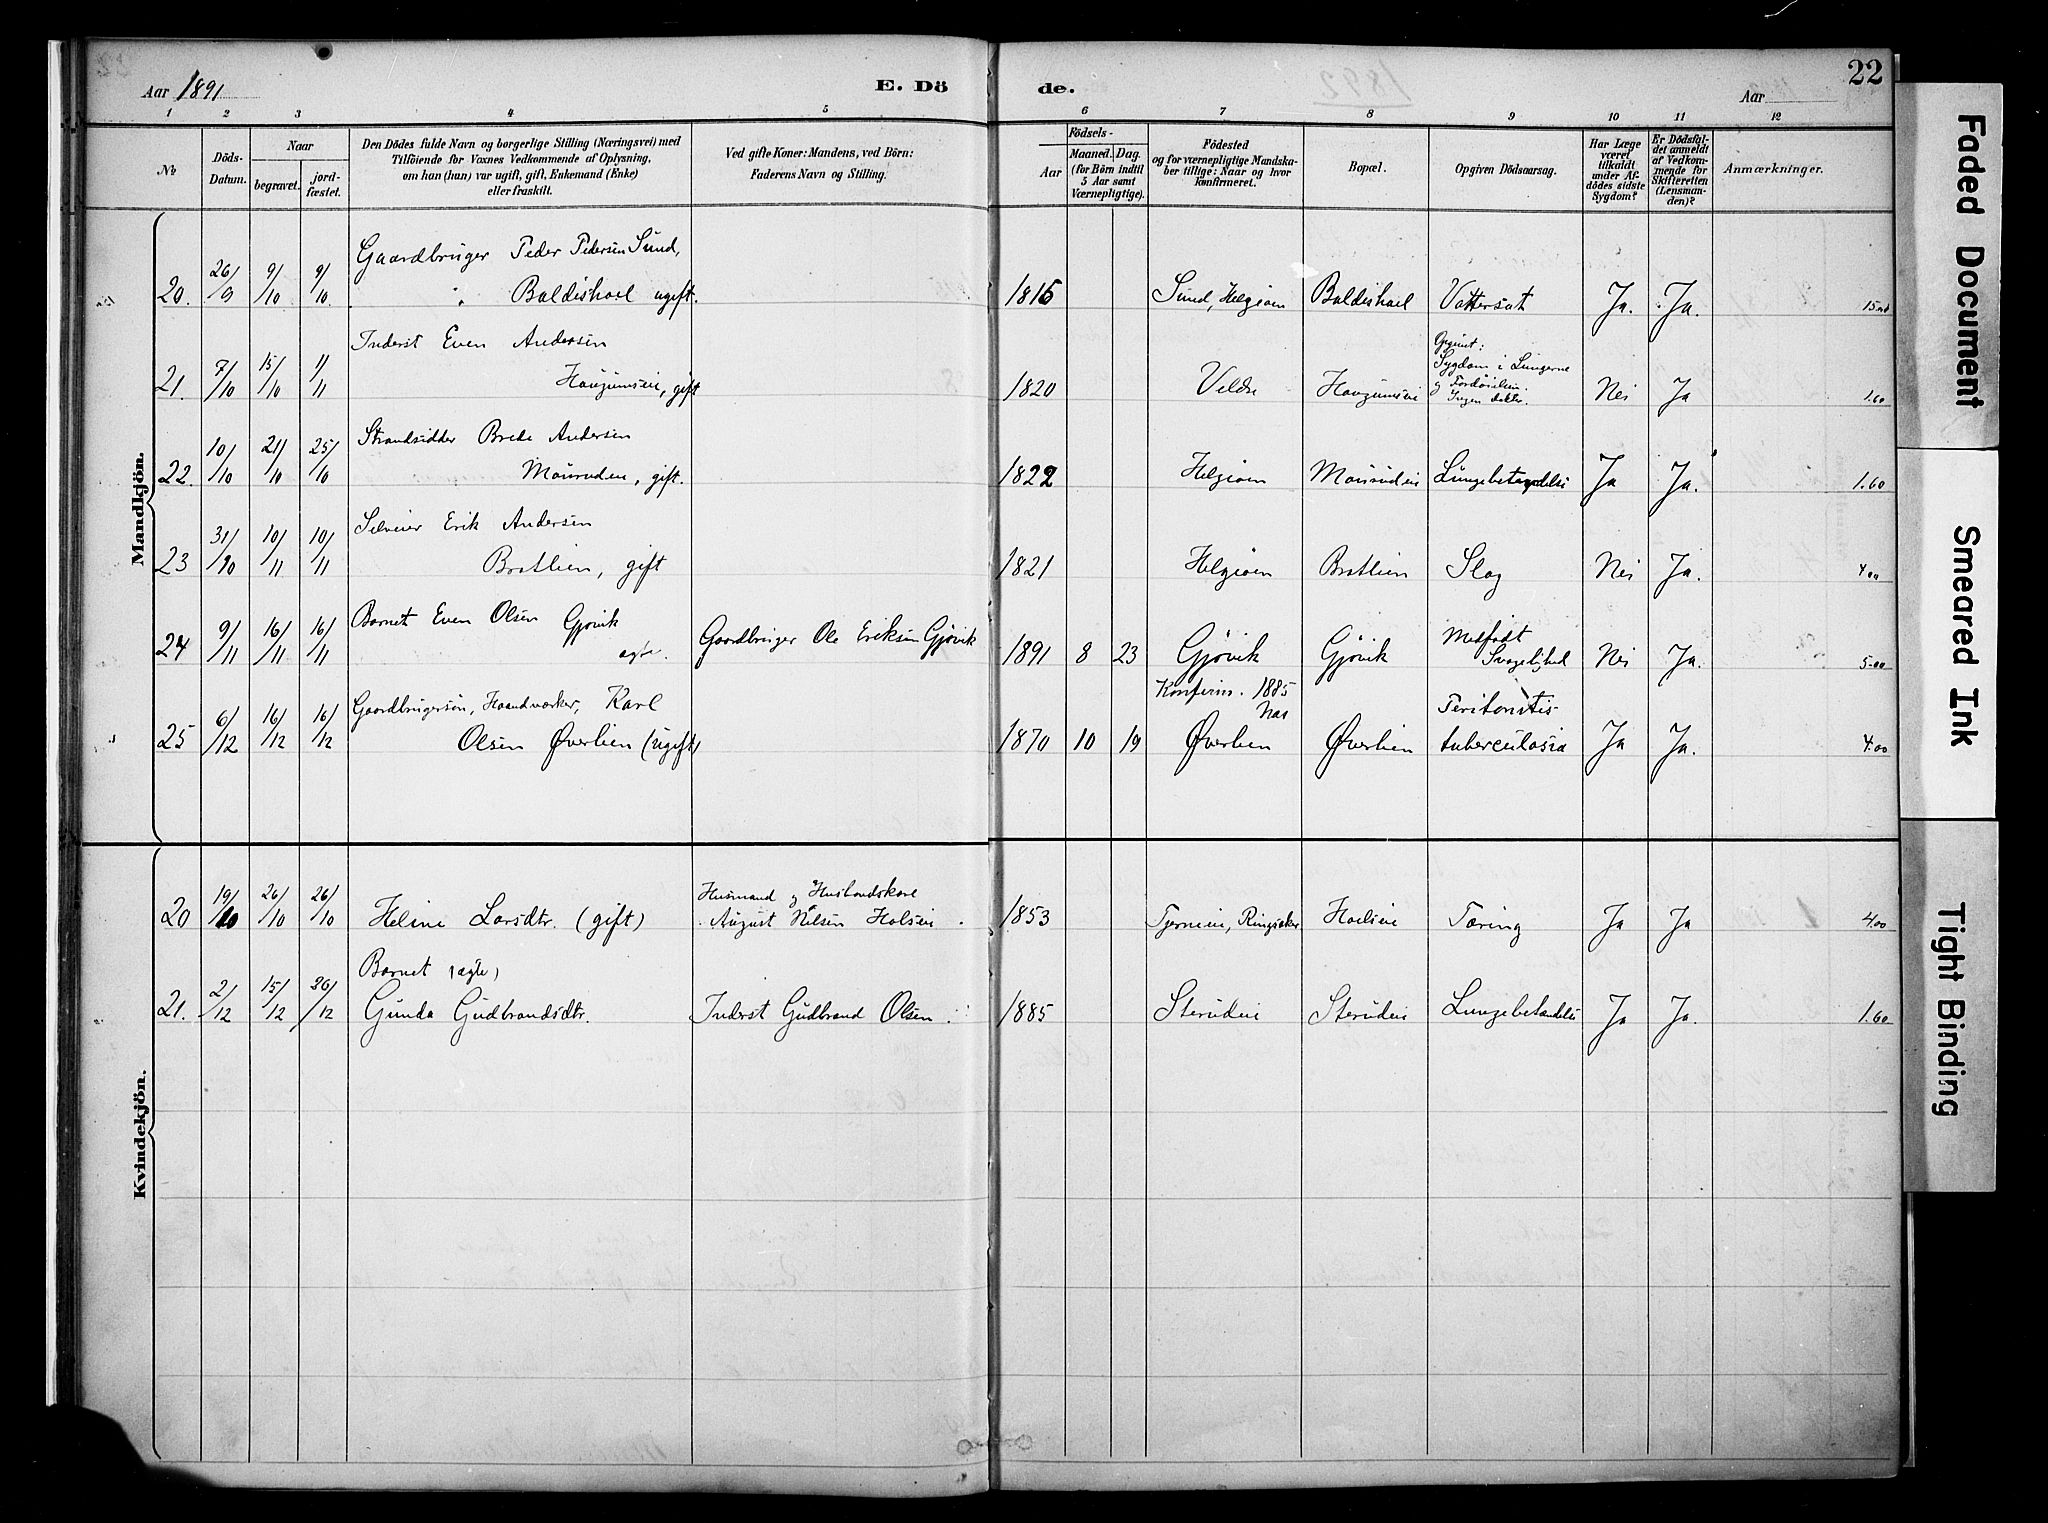 Aar 1891
E. Dö
de.
1892
Aar
22
1 2 3 4 5 6 7 8 9 10 11 12
No
Döds-Datum.
Naar
begravet.
jord-fæstet.
Den Dödes fulde Navn og borgerlige Stilling (Næringsvei) med
Tilföiende for Voxnes Vedkommende af Oplysning,
om han (hun) var ugift, gift, Enkemand (Enke)
eller fraskilt.
Ved gifte Koner: Mandens, ved Börn:
Faderens Navn og Stilling.
Födsels-
Aar
Maaned. Dag.
(for Börn indtil
5 Aar samt
Værnepligtige).
Födested
og for værnepligtige Mandska-
ber tillige: Naar og hvor
konfirmeret.
Bopæl.
Opgiven Dödsaarsag.
Har Læge
været
tilkaldt
under Af-
dödes sidste
Sygdom?
Er Dödsfal-
det anmeldt
af Vedkom-
mende for
Skifteretten
(Lensman-
den)?
Anmærkninger.
Mandkjön.
Gaardbruger Peder Pedersen Sund,
20. 26/9 9/10 9/10 " Baldishoel ugift. 1816 Sund, Helgøen Baldishoel Vattersot Ja. Ja.
Inderst Even Andersen
Opgivet:
Sygdom i Lungerne
21. 7/10 15/10 1/11 gift 1820 Veldre og Nei Ja 1.60
Ingen doktor.
Strandsidder Brede Andersen
22. 10/10 21/10 25/10 Mouruden, gift. 1822 Helgøen Lungebetændelse Ja Ja. 1.60
Selveier Erik Andersen
23 31/10 10/11 10/11 Bratlien, gift 1821 Helgøen Bratlien Slag Nei Ja. 4.00
Barnet Even Olsen Gjøvik
Medfødt
24 9/11 16/11 16/11 ægte. Gaardbruger Ole Eriksen Gjøvik 1891 8 23 Gjøvik Gjøvik Svagelighed Nei Ja. 5.00
Gaardbrugersøn, Haandværker, Karl
Konfirm. 1885
Næs
Peritonitis
25 6/12 16/12 16/12 Olsen Øverlien (ugift) 1870 10 19 Øverlien Øverlien tuberculosia Ja Ja. 4.00
Kvindekjön.
Husmand og
20 19/10 26/10 26/10 Heline Larsdtr. (gift) August Nilsen 1853 Ringsaker Tæring Ja Ja 4.00
Barnet (ægte)
21. 2/12 15/12 Gunda Gudbrandsdtr. Inderst Gudbrand Olsen. 1885 Lungebetændelse Ja Ja. 1.60
Faded Document
Smeared Ink
Tight Binding